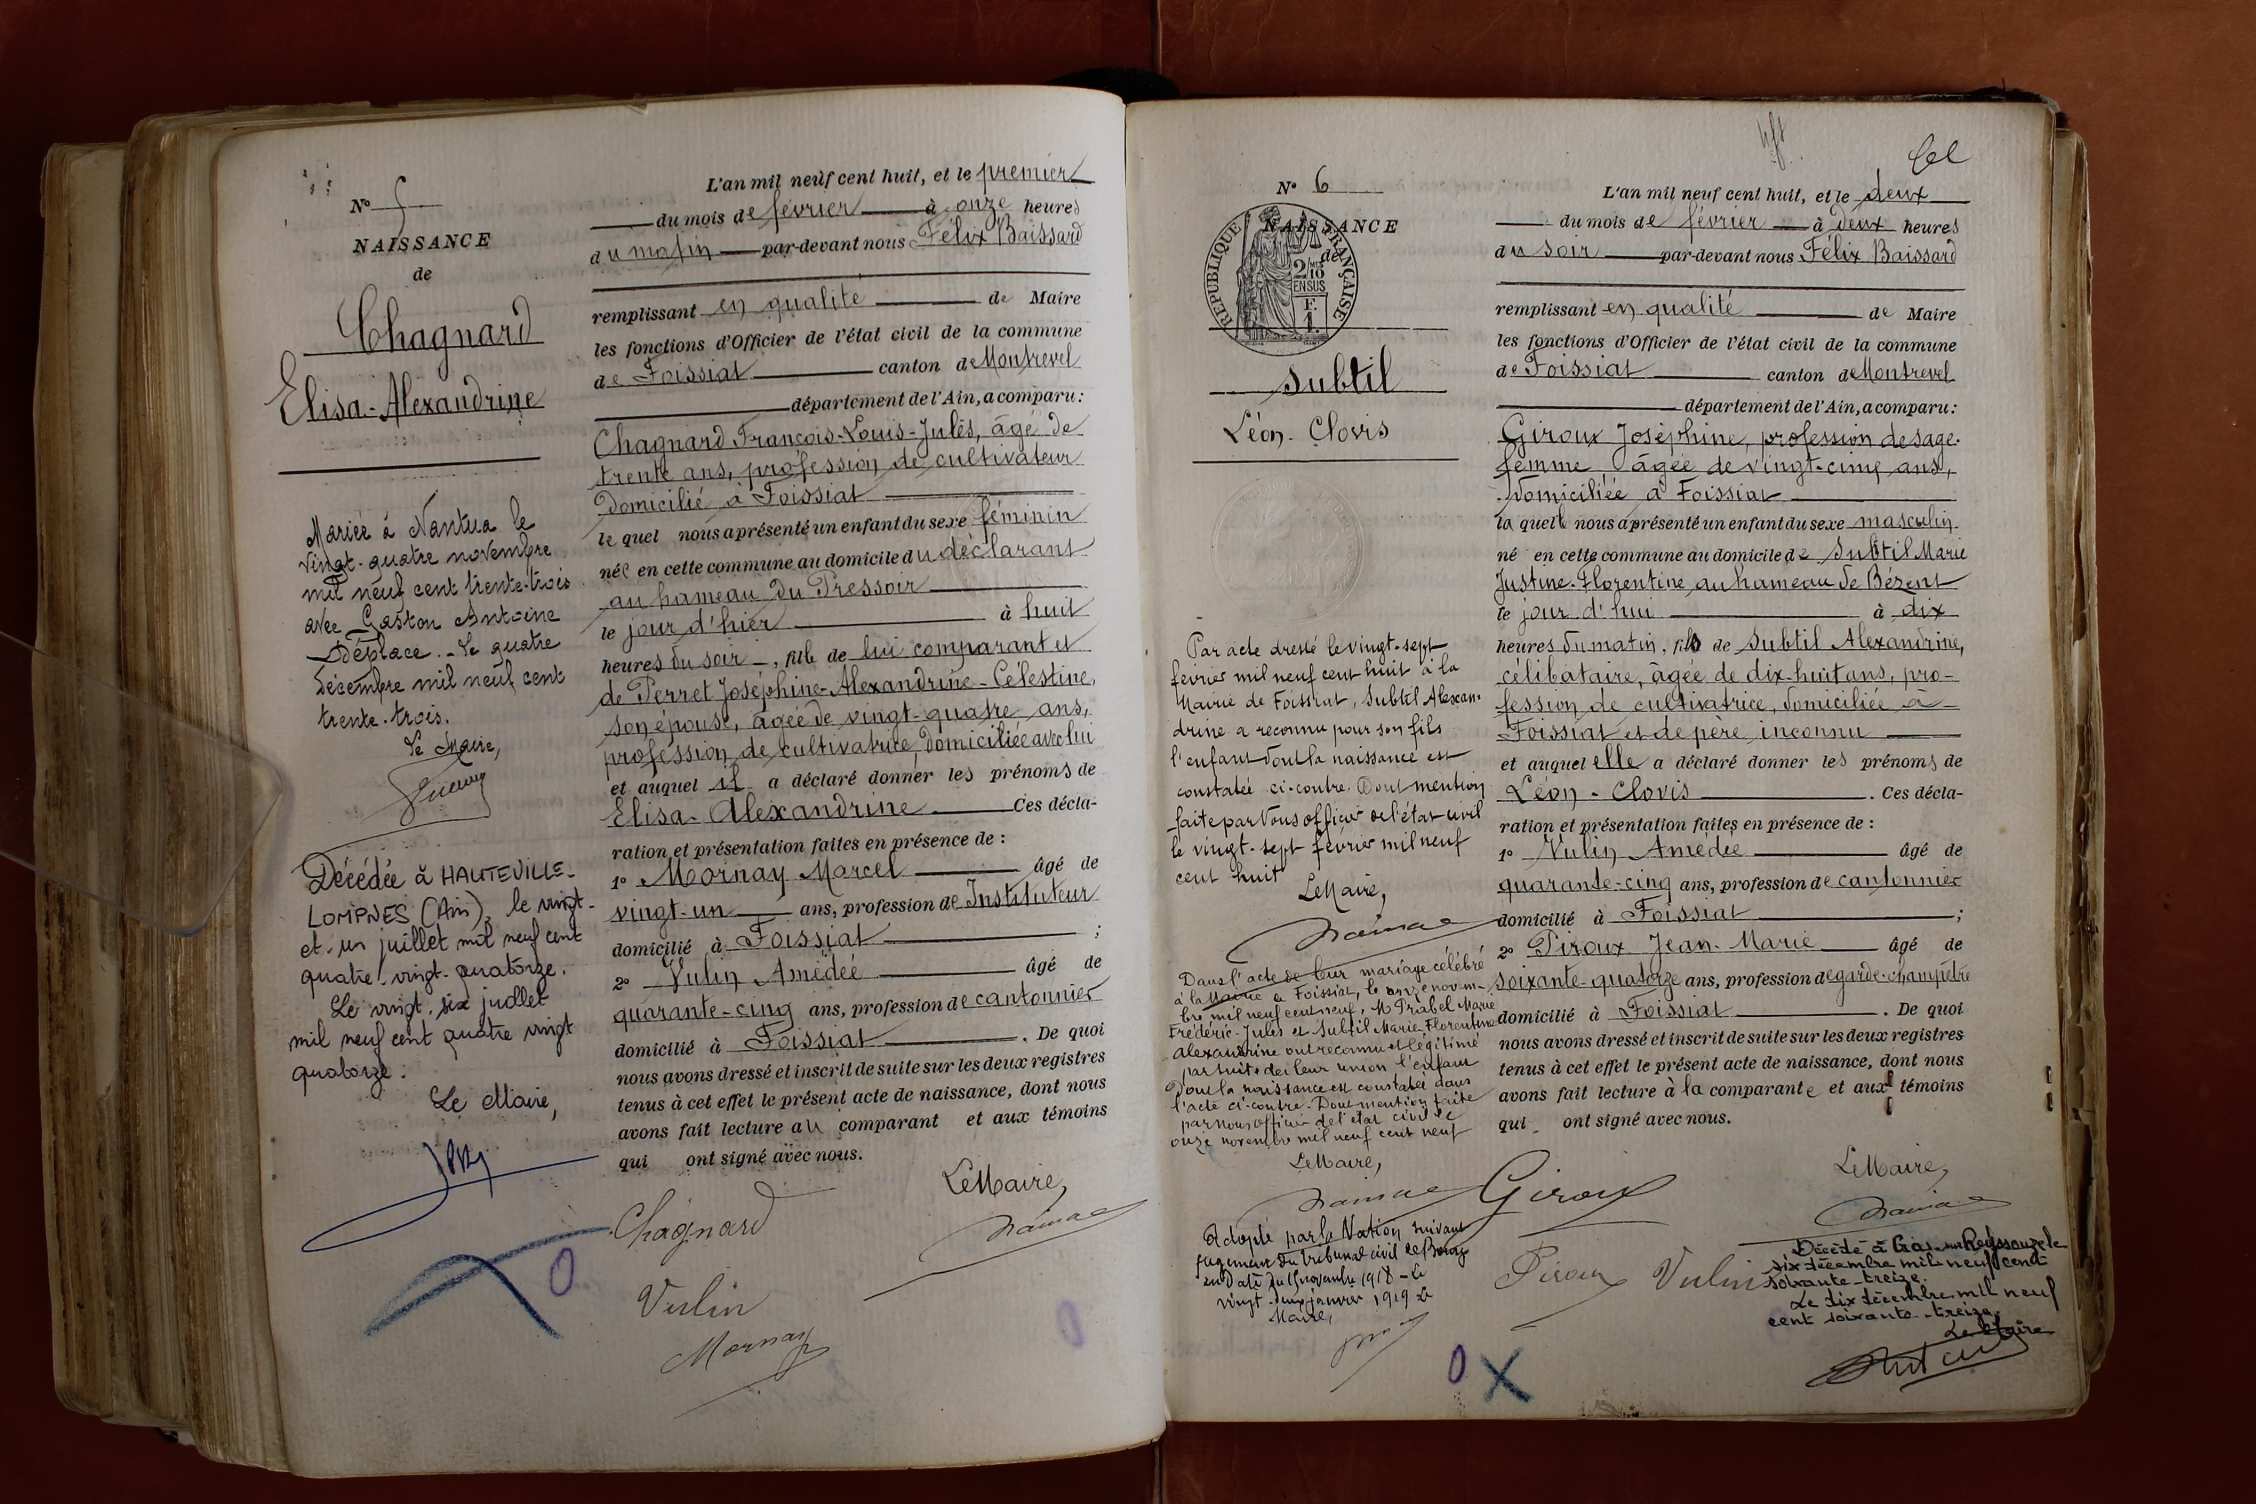 N° 5
NAISSANCE
de
Chagnard
Elisa-Alexandrine
Mariée à Nantua le
vingt-quatre novembre
mil neuf cent trente-trois
avec Gaston Antoine
Déplace. - Le quatre
décembre mil neuf cent
trente-trois.
Le Maire,
Décédée à HAUTEVILLE-
LOMPNES (Ain), le vingt-
et-un juillet mil neuf cent
quatre-vingt-quatorze.
Le vingt-six juillet
mil neuf cent quatre vingt
quatorze.
Le Maire,
L'an mil neuf cent huit, et le premier
du mois de février à onze heures
du matin par-devant nous Félix Baissard
remplissant en qualité de Maire
les fonctions d'Officier de l'état civil de la commune
de Foissiat canton de Montrevel
département de l'Ain, a comparu:
Chagnard François-Louis-Jules, âgé de
trente ans, profession de cultivateur
domicilié à Foissiat
le quel nous a présenté un enfant du sexe féminin
née en cette commune au domicile du déclarant
au hameau du Pressoir
le jour d'hier à huit
heures du soir, fille de lui comparant et
de Perret Joséphine-Alexandrine-Célestine,
son épouse, âgée de vingt-quatre ans,
profession de cultivatrice, domiciliée avec lui
et auquel il a déclaré donner les prénoms de
Elisa-Alexandrine Ces décla-
ration et présentation faites en présence de :
1° Mornay Marcel âgé de
vingt-un ans, profession de Instituteur
domicilié à Foissiat ;
2° Vulin Amédée âgé de
quarante-cinq ans, profession de cantonnier
domicilié à Foissiat . De quoi
nous avons dressé et inscrit de suite sur les deux registres
tenus à cet effet le présent acte de naissance, dont nous
avons fait lecture au comparant et aux témoins
qui ont signé avec nous.
Le Maire,
Chagnard
Vulin
Mornay
N° 6
NAISSANCE
de
RÉPUBLIQUE FRANÇAISE
2/10
EN SUS
F.
1.
Subtil
Léon-Clovis
Par acte dressé le vingt-sept
février mil neuf cent huit à la
Mairie de Foissiat, Subtil Alexan-
drine a reconnu pour son fils
l'enfant dont la naissance est
constatée ci-contre. Dont mention
faite par Nous officier de l'état civil
le vingt-sept février mil neuf
cent huit
Le Maire,
Dans l'acte de leur mariage célébré
à la Mairie de Foissiat, le onze novem-
bre mil neuf cent neuf, M. Priabel Marie
Frédéric-Jules et Subtil Marie Florentine
Alexandrine ont reconnu et légitimé
par suite de leur union l'enfant
dont la naissance est constatée dans
l'acte ci-contre. Dont mention faite
par nous officier de l'état civil le
onze novembre mil neuf cent neuf
Le Maire,
Adopté par la Nation suivant
jugement du tribunal civil de Bourg
en date du 15 novembre 1918 - Le
vingt-deux janvier 1919 Le
Maire,
L'an mil neuf cent huit, et le deux
du mois de février à deux heures
du soir par-devant nous Félix Baissard
remplissant en qualité de Maire
les fonctions d'Officier de l'état civil de la commune
de Foissiat canton de Montrevel
département de l'Ain, a comparu:
Giroux Joséphine, profession de sage-
femme, âgée de vingt-cinq ans,
domiciliée à Foissiat
la quelle nous a présenté un enfant du sexe masculin
né en cette commune au domicile de Subtil Marie
Justine-Florentine au hameau de Bézent
le jour d'hui à dix
heures du matin, fils de Subtil Alexandrine,
célibataire, âgée de dix-huit ans, pro-
fession de cultivatrice, domiciliée à
Foissiat et de père inconnu
et auquel elle a déclaré donner les prénoms de
Léon-Clovis . Ces décla-
ration et présentation faites en présence de :
1° Vulin Amédée âgé de
quarante-cinq ans, profession de cantonnier
domicilié à Foissiat ;
2° Piroux Jean-Marie âgé de
soixante-quatorze ans, profession de garde-champêtre
domicilié à Foissiat . De quoi
nous avons dressé et inscrit de suite sur les deux registres
tenus à cet effet le présent acte de naissance, dont nous
avons fait lecture à la comparante et aux témoins
qui ont signé avec nous.
Le Maire,
Giroux
Piroux Vulin
Décédé à Cras sur Reyssouze le
six décembre mil neuf cent
soixante-treize.
Le dix décembre mil neuf
cent soixante-treize.
Le Maire